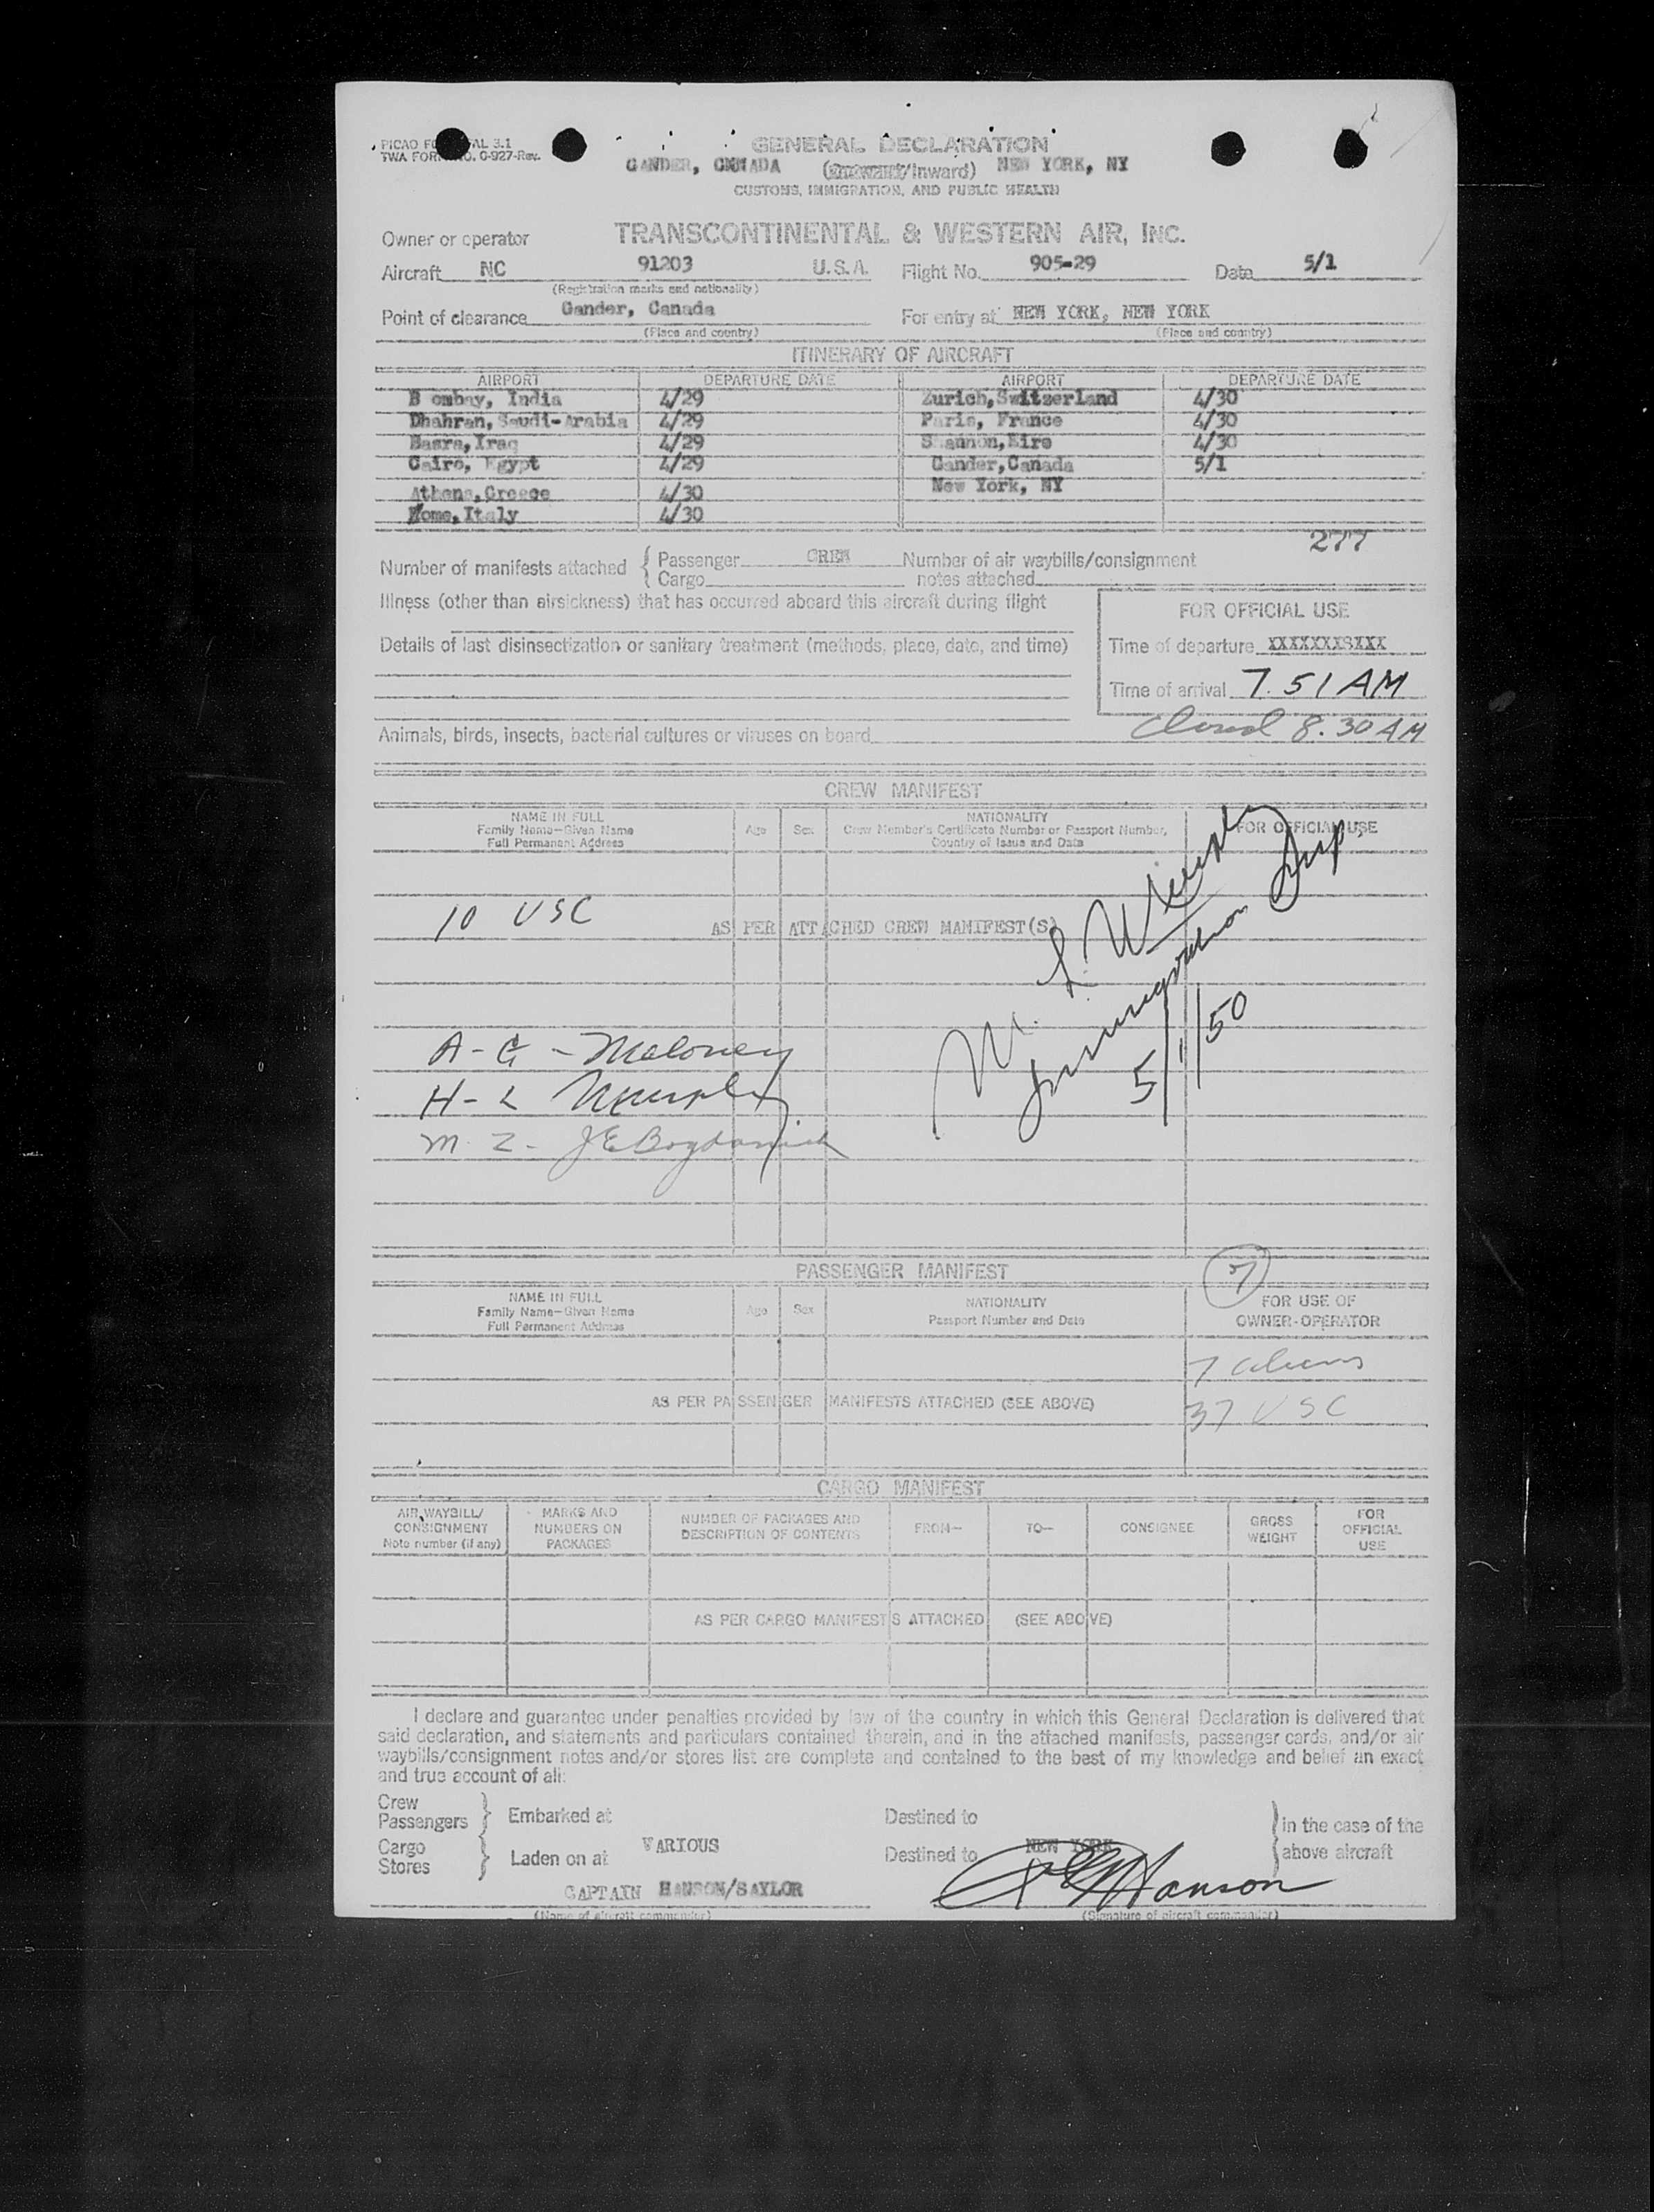 GENERAL DECLARATION
TWA FORM NO. O-927-Rev.
GANDER, CNMADA (Inward) NEW YORK, NY
CUSTOMS, IMMIGRATION, AND PUBLIC HEALTH
Owner or operator TRANSCONTINENTAL & WESTERN AIR, INC.
Aircraft NC 91203 U.S.A. Flight No. 905-29 Date 5/1
(Registration marks and nationality)
Point of clearance Gander, Canada For entry at NEW YORK, NEW YORK
(Place and country) (Place and country)
ITINERARY OF AIRCRAFT
AIRPORT DEPARTURE DATE AIRPORT DEPARTURE DATE
B ombay, India 4/29 Zurich,Switzerland 4/30
Dhahran, Saudi-Arabia 4/29 Paris, France 4/30
Basra,Iraq 4/29 Shannon,Eire 4/30
Cairo, Egypt 4/29 Gander,Canada 5/1
Athens,Greece 4/30 New York, NY
Rome,Italy 4/30
277
Number of manifests attached { Passenger CREW Number of air waybills/consignment
Cargo notes attached
Illness (other than airsickness) that has occurred aboard this aircraft during flight
FOR OFFICIAL USE
Details of last disinsectization or sanitary treatment (methods, place, date, and time)
Time of departure XXXXXXXSXXX
Time of arrival 7.51 AM
Closed 8.30 AM
Animals, birds, insects, bacterial cultures or viruses on board
CREW MANIFEST
NAME IN FULL Age Sex NATIONALITY FOR OFFICIAL USE
Family Name—Given Name Crew Member's Certificate Number or Passport Number,
Full Permanent Address Country of Issue and Date
10 USC
AS PER ATTACHED CREW MANIFEST(S)
Immigration Insp
5/1/50
A-G - Maloney
H-L Murphy
M-Z- JEBogdanich
PASSENGER MANIFEST
7
NAME IN FULL Age Sex NATIONALITY FOR USE OF
Family Name—Given Name Passport Number and Date OWNER-OPERATOR
Full Permanent Address
7 aliens
AS PER PASSENGER MANIFESTS ATTACHED (SEE ABOVE)
37 USC
CARGO MANIFEST
AIR WAYBILL/ MARKS AND NUMBER OF PACKAGES AND FROM— TO— CONSIGNEE GROSS FOR
CONSIGNMENT NUMBERS ON DESCRIPTION OF CONTENTS WEIGHT OFFICIAL
Note number (if any) PACKAGES USE
AS PER CARGO MANIFESTS ATTACHED (SEE ABOVE)
I declare and guarantee under penalties provided by law of the country in which this General Declaration is delivered that
said declaration, and statements and particulars contained therein, and in the attached manifests, passenger cards, and/or air
waybills/consignment notes and/or stores list are complete and contained to the best of my knowledge and belief an exact
and true account of all:
Crew
Passengers } Embarked at Destined to } in the case of the
Cargo
Stores } Laden on at VARIOUS Destined to NEW YORK above aircraft
CAPTAIN HANSON/SAYLOR Hanson
(Name of aircraft commander) (Signature of aircraft commander)